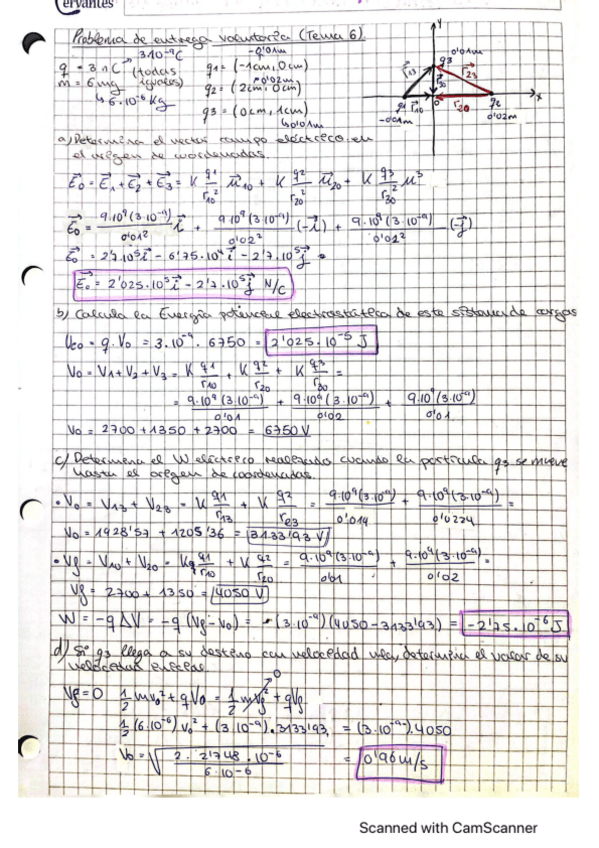 Cervantes
Problema de entrega voluntaria (Tema 6).
q = 3nC (todas iguales) 3·10⁻⁹C
m = 6mg
↳ 6·10⁻⁶ Kg
-0'01m
q1 = (-1cm, 0cm)
0'02m
q2 = (2cm, 0cm)
q3 = (0cm, 1cm)
↳ 0'01m
y
0'01m
q3
r⃗13
r⃗30
r⃗23
q1
r⃗10
0
r⃗20
q2
x
-0'01m
0'02m
a) Determina el vector campo eléctrico en
el origen de coordenadas.
E⃗o = E⃗1 + E⃗2 + E⃗3 = K q1/r10² μ⃗10 + K q2/r20² μ⃗20 + K q3/r30² μ³
E⃗o = 9·10⁹(3·10⁻⁹)/0'01² i⃗ + 9·10⁹(3·10⁻⁹)/0'02² (-i⃗) + 9·10⁹(3·10⁻⁹)/0'01² (-j⃗)
E⃗o = 2'7·10⁵ i⃗ - 6'75·10⁴ i⃗ - 2'7·10⁵ j⃗
E⃗o = 2'025·10⁵ i⃗ - 2'7·10⁵ j⃗ N/C
b) Calcula la Energía potencial electrostática de este sistema de cargas
Uco = q·Vo = 3·10⁻⁹·6750 = 2'025·10⁻⁵ J
Vo = V1 + V2 + V3 = K q1/r10 + K q2/r20 + K q3/r30 =
= 9·10⁹(3·10⁻⁹)/0'01 + 9·10⁹(3·10⁻⁹)/0'02 + 9·10⁹(3·10⁻⁹)/0'01
Vo = 2700 + 1350 + 2700 = 6750 V
c) Determina el W eléctrico realizado cuando la partícula q3 se mueve
hasta el origen de coordenadas.
• Vo = V13 + V23 = K q1/r13 + K q2/r23 = 9·10⁹(3·10⁻⁹)/0'014 + 9·10⁹(3·10⁻⁹)/0'0224 =
Vo = 1928'57 + 1205'36 = 3133'93 V
• Vf = V10 + V20 = K q1/r10 + K q2/r20 = 9·10⁹(3·10⁻⁹)/0'01 + 9·10⁹(3·10⁻⁹)/0'02 =
Vf = 2700 + 1350 = 4050 V
W = -q ΔV = -q (Vf - Vo) = -(3·10⁻⁹)(4050 - 3133'93) = -2'75·10⁻⁶ J
d) Si q3 llega a su destino con velocidad nula, determina el valor de su
velocidad inicial.
Vf = 0 ½ mvo² + qVo = ½ mvf² + qVf 0
½ (6·10⁻⁶) vo² + (3·10⁻⁹)·3133'93 = (3·10⁻⁹)·4050
Vo = √(2·2'748·10⁻⁶ / 6·10⁻⁶) = 0'96 m/s
Scanned with CamScanner